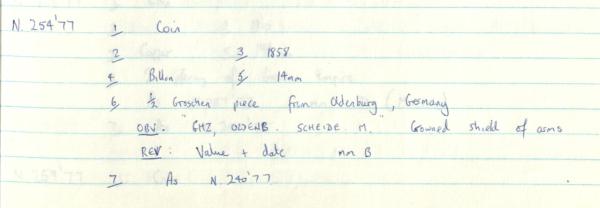 N. 254'77 1 Coin
2 3 1858
4 Billon 5 14mm
6 ½ Groschen piece from Oldenburg, Germany
OBV. "GHZ, OLDENB. SCHEIDE M." Crowned shield of arms
REV: Value + date mm B
7 As N. 240'77